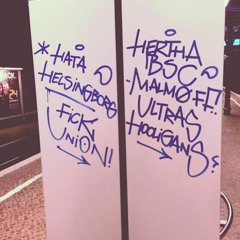 * HATA
HELSINGBORG
FICK
UNION!
HERTHA
BSC
MALMØ FF!
ULTRAS
HOOLIGANS
24